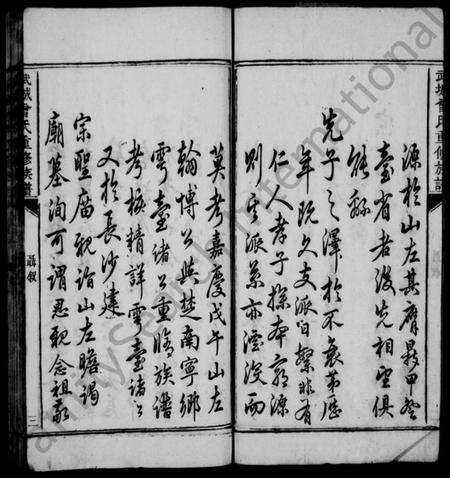 源於山左其膺最甲登
臺省者後先相望俱
能
先子之澤於不衰第歷
年既久支派日繁非有
仁人孝子探本窮源
則宗派薉亦湮沒而
莫考嘉慶戊午山左
翰博公與楚南寧鄉
雩臺諸公重脩族譜
考核精詳雩臺諸公
又於長沙建
宗聖廟親詣山左瞻謁
廟墓洵可謂思親念祖敬
武城曾氏重修族譜
聶叙
武城曾氏重修族譜
FamilySearch International